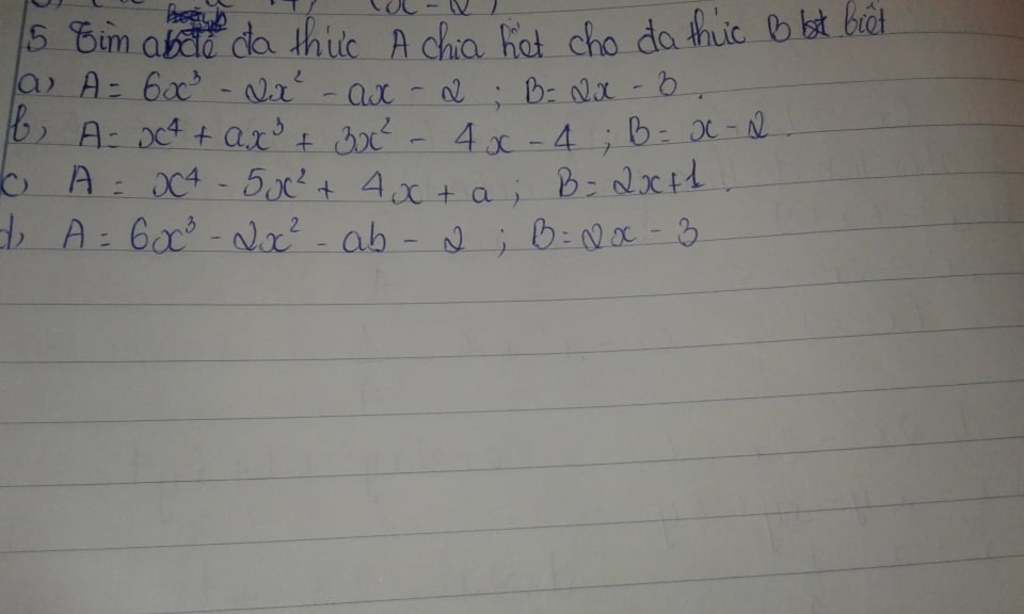 5 Tìm a để đa thức A chia hết cho đa thức B biết
a) A = 6x³ - 2x² - ax - 2 ; B = 2x - 3.
b) A = x⁴ + ax³ + 3x² - 4x - 4 ; B = x - 2.
c) A = x⁴ - 5x² + 4x + a ; B = 2x + 1.
d) A = 6x³ - 2x² - ab - 2 ; B = 2x - 3